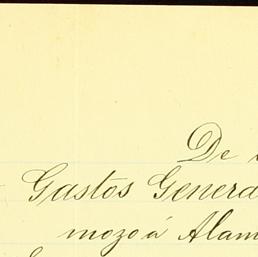 De
Gastos Genera
mozo á Alam